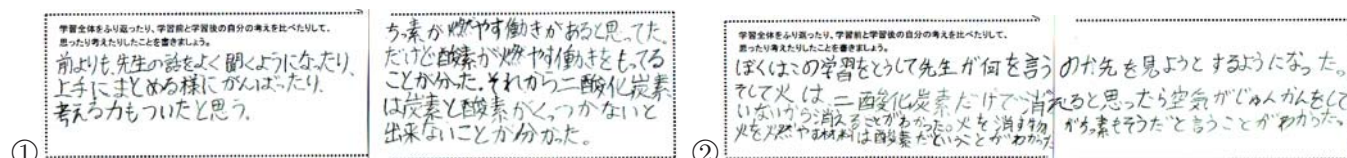 学習全体をふり返ったり、学習前と学習後の自分の考えを比べたりして、
思ったり考えたりしたことを書きましょう。
前よりも、先生の話をよく聞くようになったり、
上手にまとめる様にがんばったり、
考える力もついたと思う。
ちっ素が燃やす働きがあると思ってた。
だけど酸素が燃やす働きをもってる
ことが分った。それから二酸化炭素
は炭素と酸素がくっつかないと
出来ないことが分かった。
①
学習全体をふり返ったり、学習前と学習後の自分の考えを比べたりして、
思ったり考えたりしたことを書きましょう。
ぼくはこの学習をとうして先生が何を言うのか先を見ようとするようになった。
そして火は、二酸化炭素だけで消えると思ったら空気がじゅんかんをして
いないから消えることがわかった。火を消す物がちっ素もそうだと言うことがわかった。
火を燃やす材料は酸素だということがわかった
②